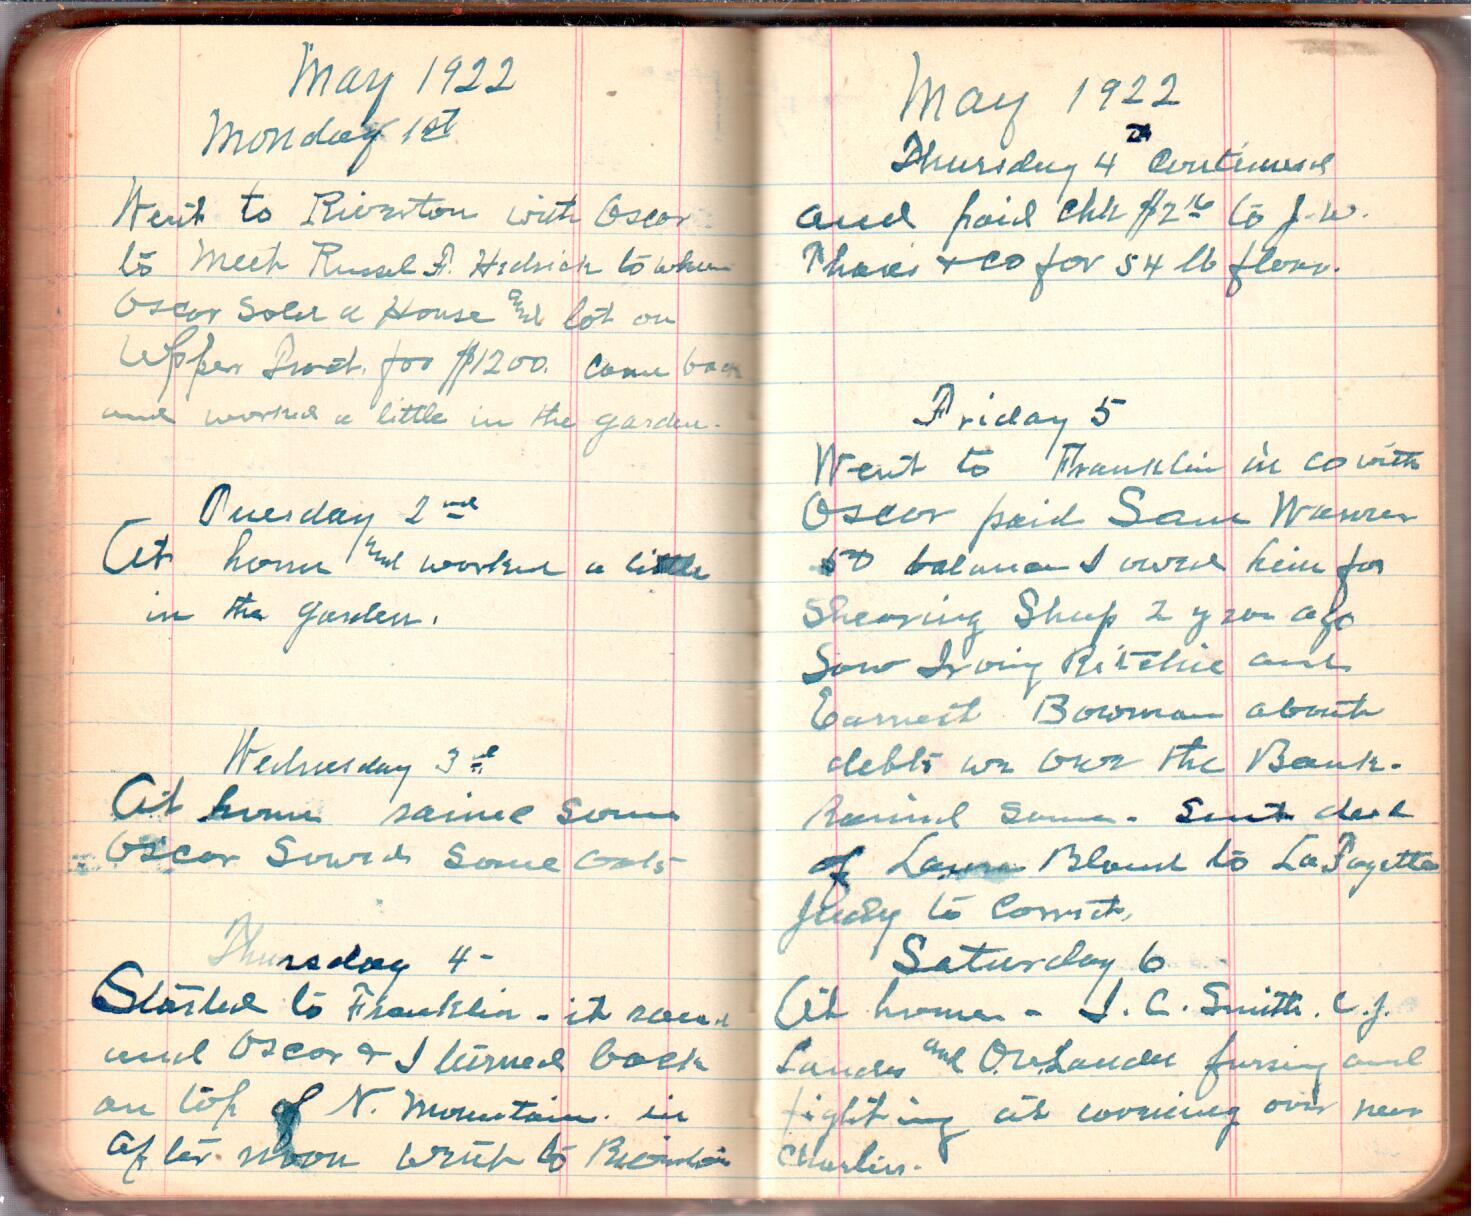 May 1922
Monday 1st
Went to Riverton with Oscar
to meet Russel F. Hedrick to whom
Oscar Sold a House and lot on
Upper Tract. for $1200. came back
and worked a little in the garden.
Tuesday 2nd
At home and worked a little
in the garden.
Wednesday 3rd
At home rained some
Oscar Sowed Some Oats
Thursday 4-
Started to Franklin - it
and Oscar & I turned back
on top of N. Mountain. in
after noon went to Riverton
May 1922
Thursday 4th Continued
and paid Chk $2 16 to J. W.
& CO for 54 lb flour.
Friday 5
Went to Franklin in co with
Oscar paid Sam Warner
balance I owed him for
Shearing Sheep 2 years ago
Saw Irving Ritchie and
Earnest Bowman about
debts we owe the Bank.
Rained Some - Sent deed
of Laura Bland to LaFayette
Judy to Correct.
Saturday 6
At home - I. C. Smith. C. J.
Landes and O. W. Landes fussing and
fighting at over near
Charlies.